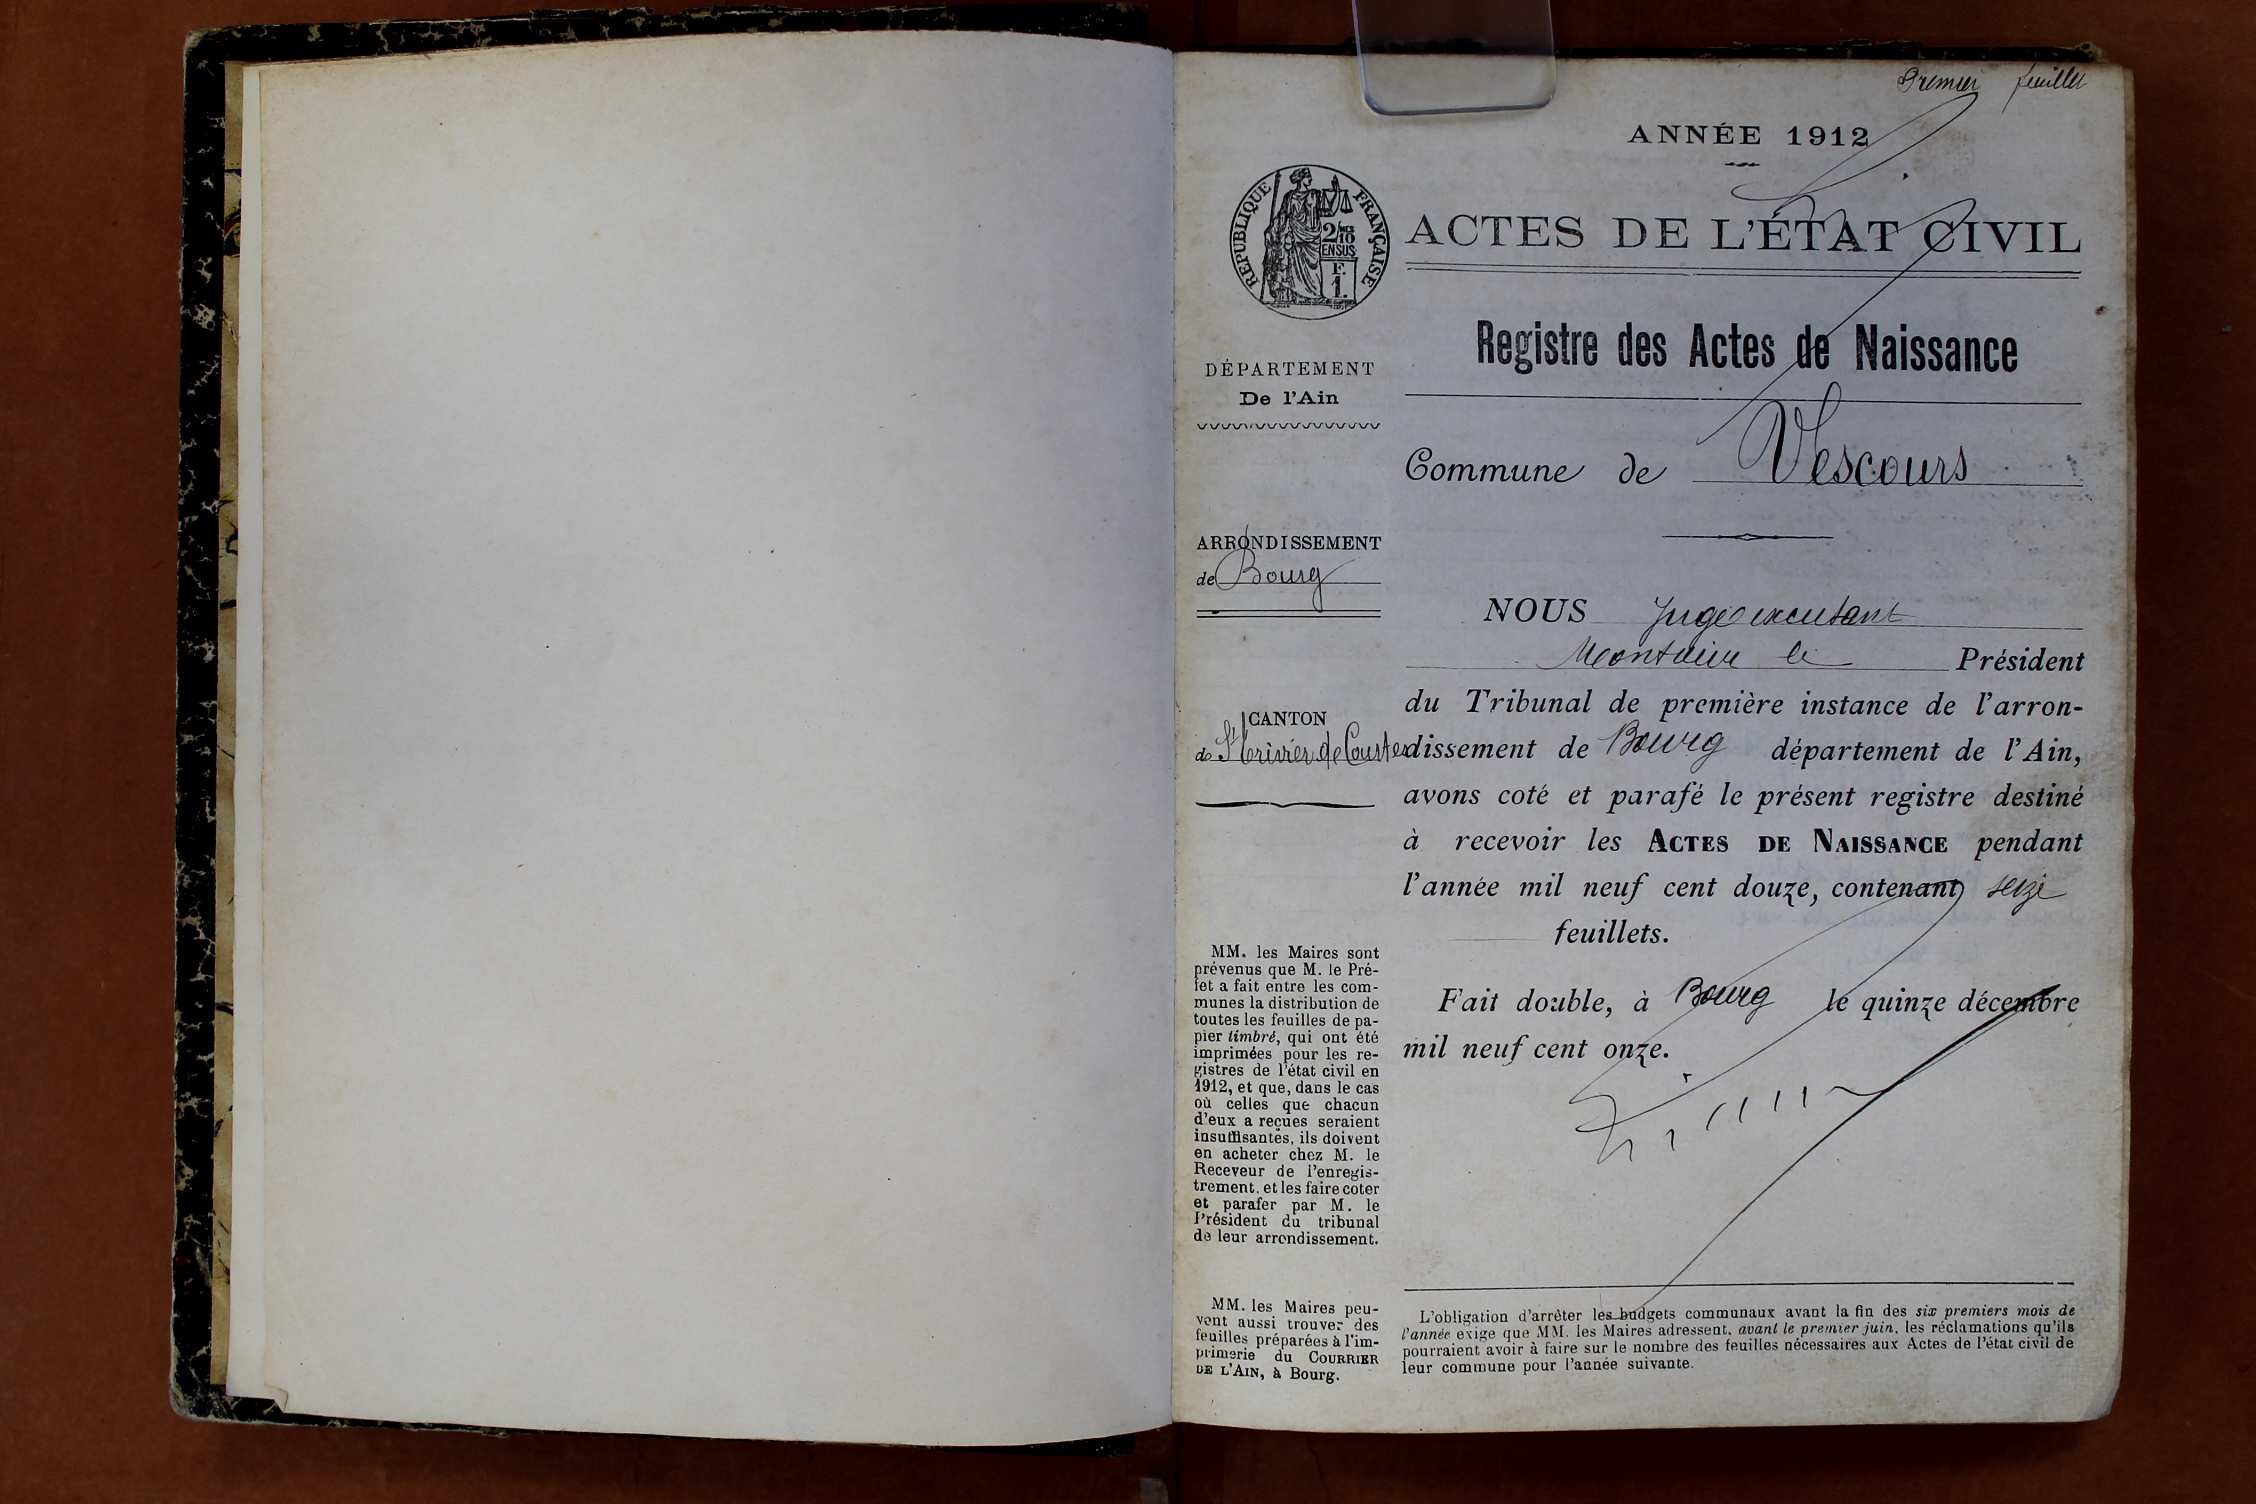 Premier feuillet
ANNÉE 1912
RÉPUBLIQUE FRANÇAISE
2/10
EN SUS
F.
1.
ACTES DE L'ÉTAT CIVIL
Registre des Actes de Naissance
Commune de Vescours
DÉPARTEMENT
De l'Ain
ARRONDISSEMENT
de Bourg
CANTON
de St Trivier de Courtes
MM. les Maires sont
prévenus que M. le Pré-
fet a fait entre les com-
munes la distribution de
toutes les feuilles de pa-
pier timbré, qui ont été
imprimées pour les re-
gistres de l'état civil en
1912, et que, dans le cas
où celles que chacun
d'eux a reçues seraient
insuffisantes, ils doivent
en acheter chez M. le
Receveur de l'enregis-
trement, et les faire coter
et parafer par M. le
Président du tribunal
de leur arrondissement.
MM. les Maires peu-
vent aussi trouver des
feuilles préparées à l'im-
primerie du COURRIER
DE L'AIN, à Bourg.
NOUS Juge
le Président
du Tribunal de première instance de l'arron-
dissement de Bourg département de l'Ain,
avons coté et parafé le présent registre destiné
à recevoir les ACTES DE NAISSANCE pendant
l'année mil neuf cent douze, contenant seize
feuillets.
Fait double, à Bourg le quinze décembre
mil neuf cent onze.
L'obligation d'arrêter les budgets communaux avant la fin des six premiers mois de
l'année exige que MM. les Maires adressent, avant le premier juin, les réclamations qu'ils
pourraient avoir à faire sur le nombre des feuilles nécessaires aux Actes de l'état civil de
leur commune pour l'année suivante.